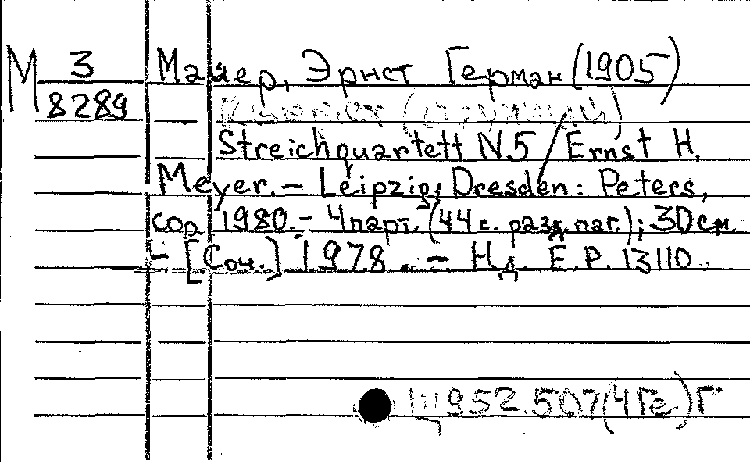 М 3 Майер, Эрнст Герман (1905)
8289 —
Streichquartett N.5 / Ernst H.
Meyer. – Leipzig; Dresden: Peters,
cop 1980. – 4 парт. (44 с. разд. паг.); 30 см.
– [Соч.] 1978. – Н.д. E.P. 13110.
Щ952.507(4Ге)Г